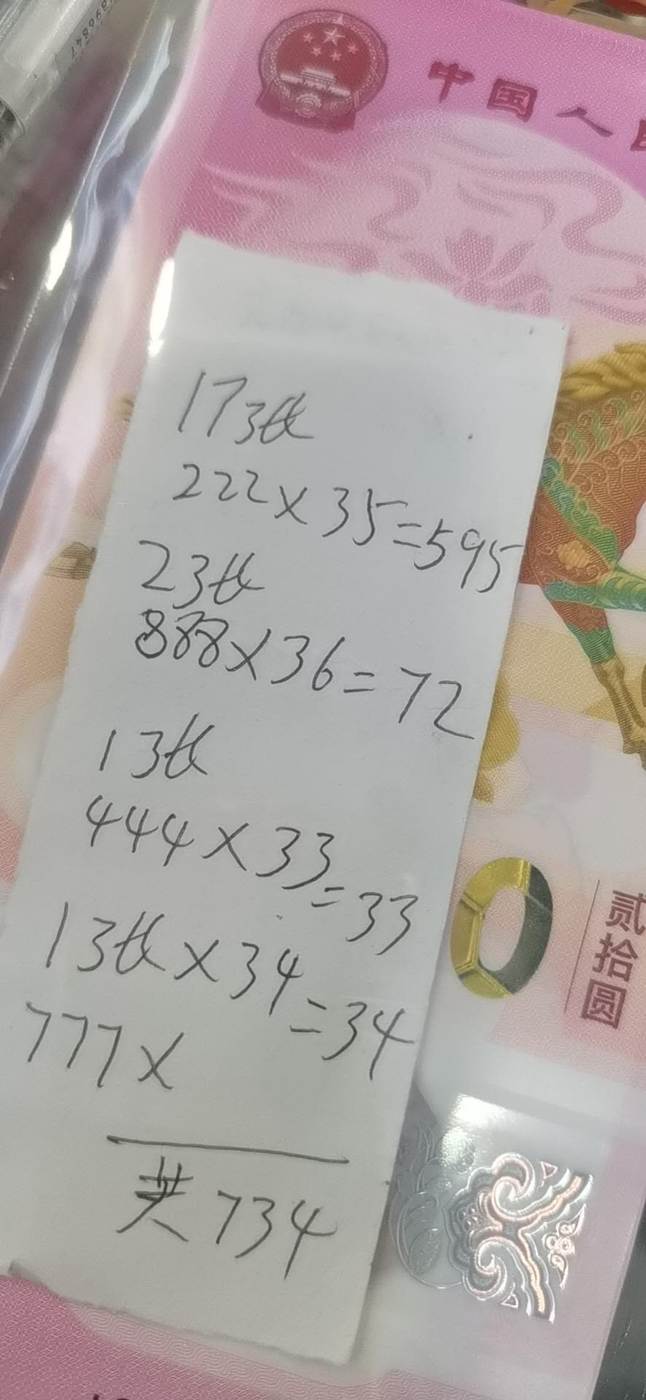 中国人民
17张
222×35=595
2张
888×36=72
1张
444×33=33
1张×34=34
777×
共734
0
贰拾圆